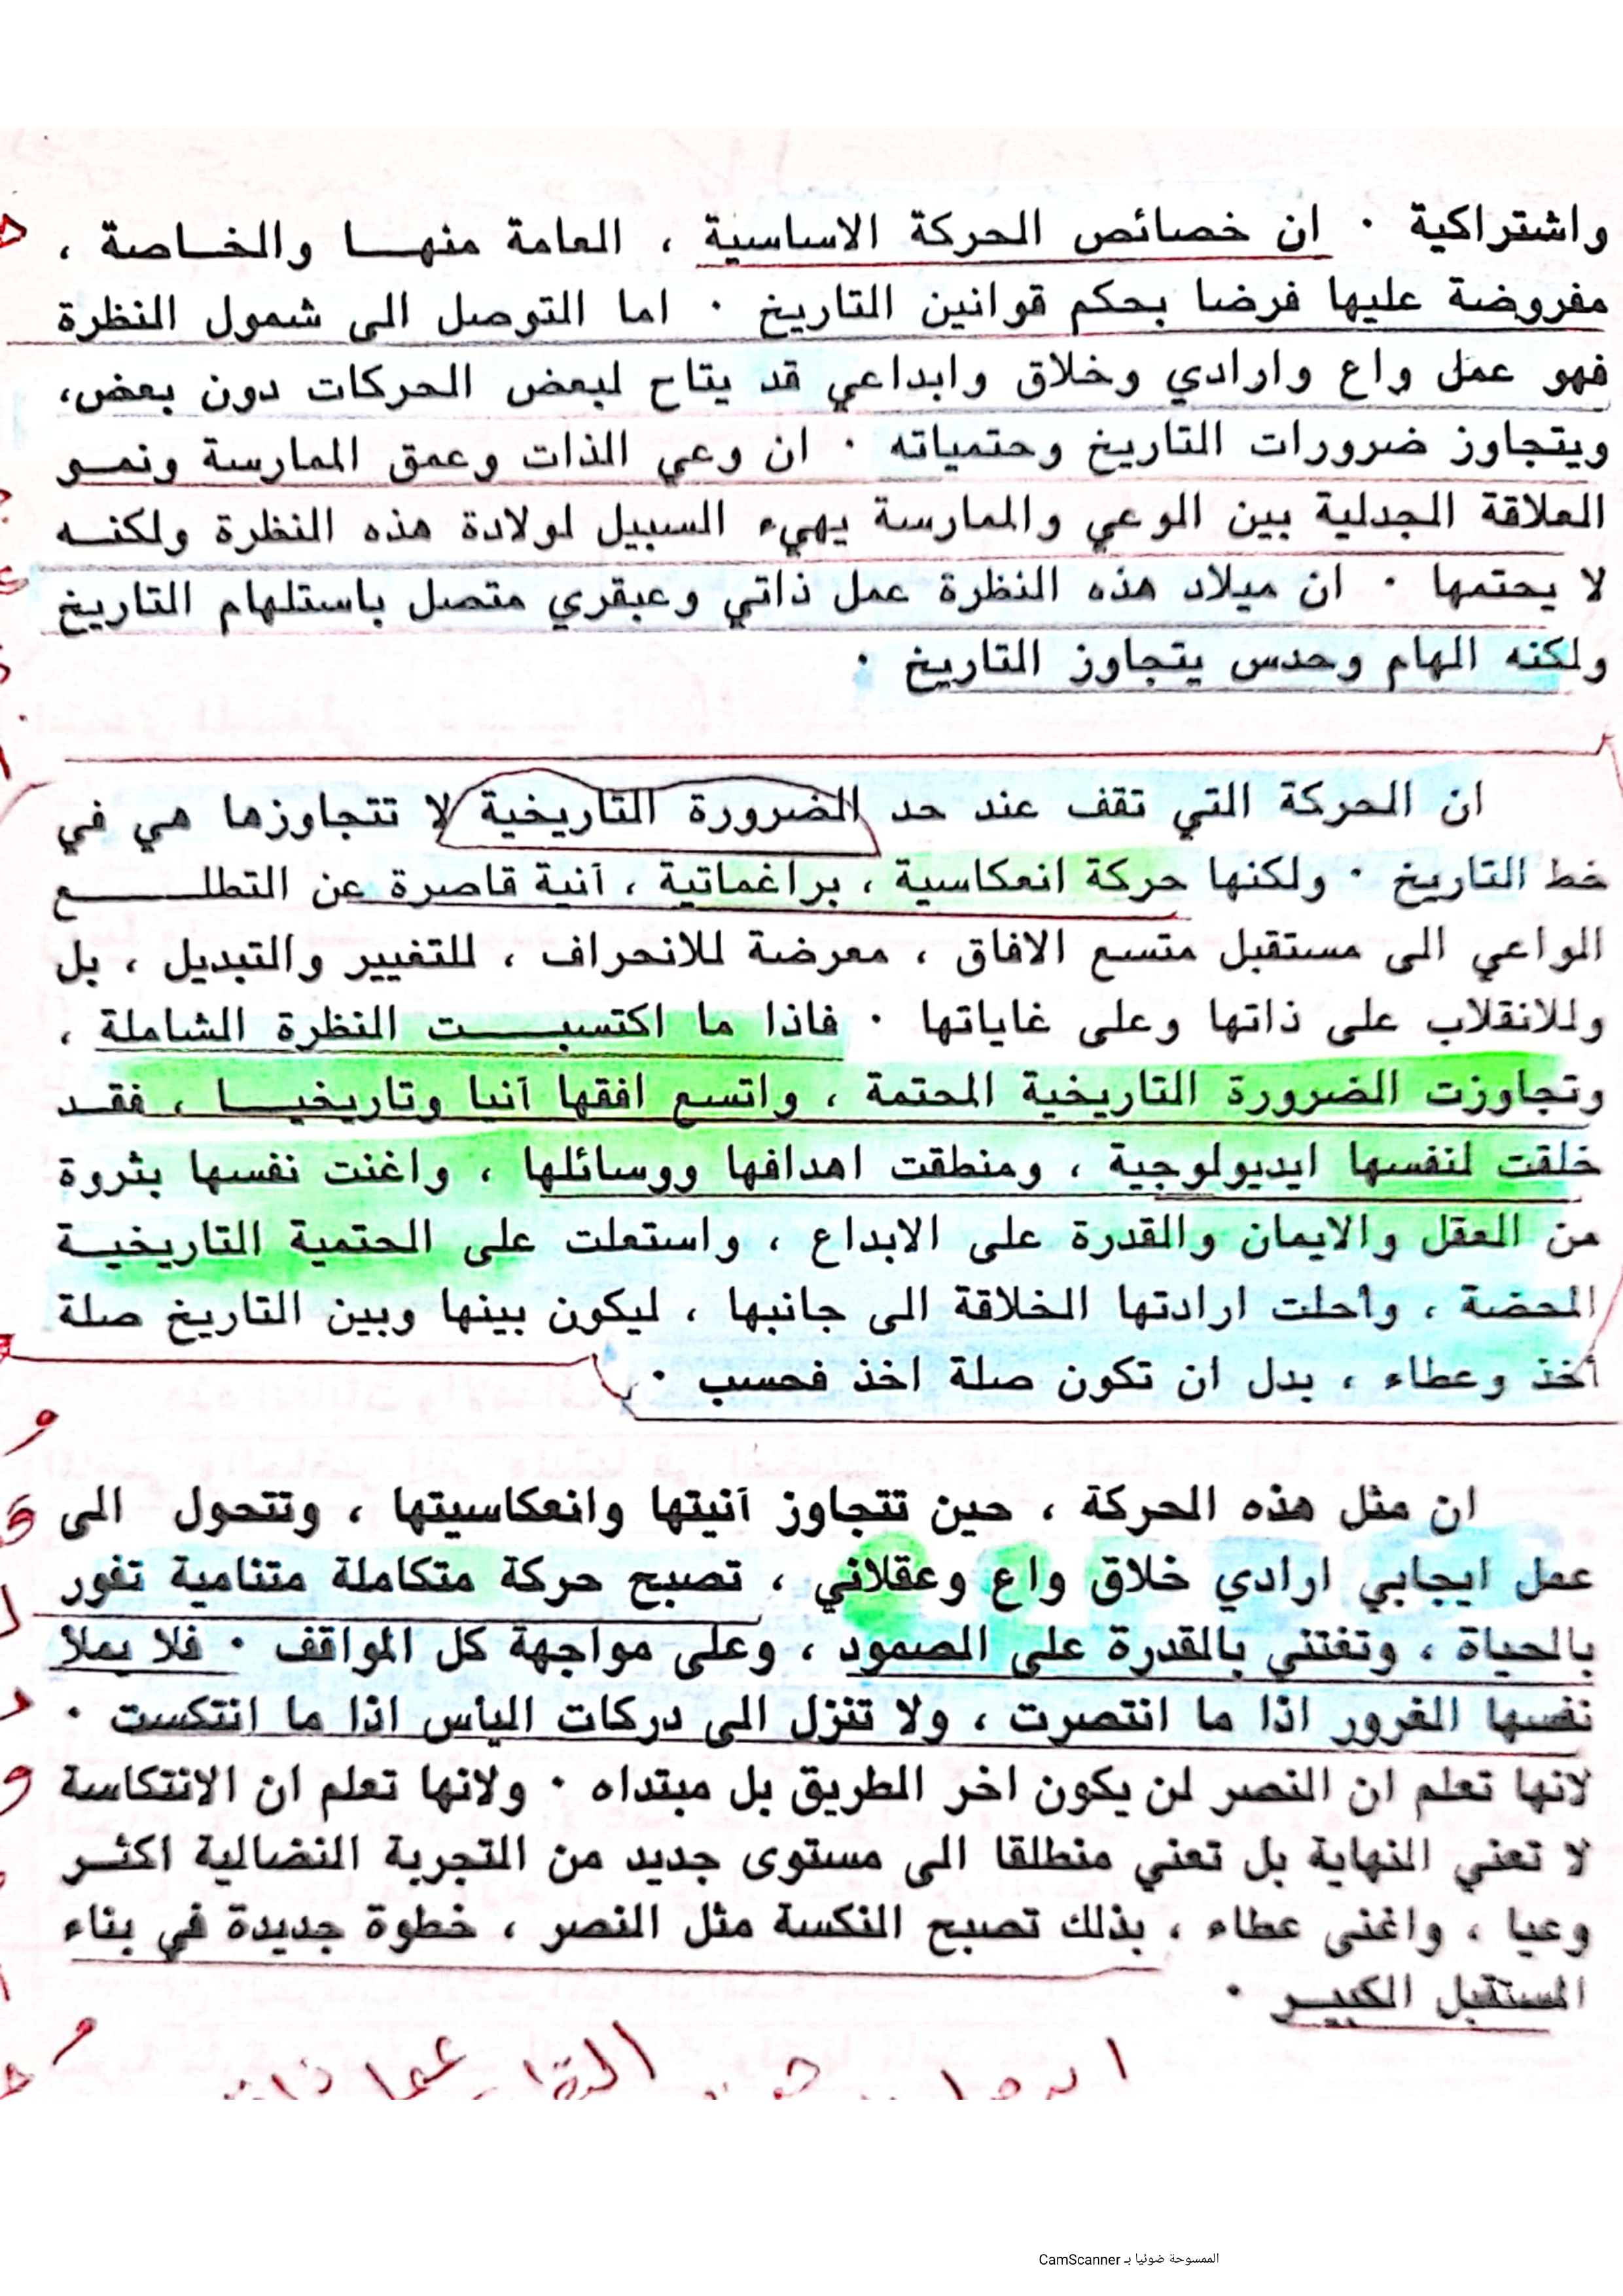 واشتراكية · ان خصائص الحركة الاساسية ، العامة منهـــا والخــاصة ،
مفروضة عليها فرضا بحكم قوانين التاريخ · اما التوصل الى شمول النظرة
فهو عمل واع وارادي وخلاق وابداعي قد يتاح لبعض الحركات دون بعض،
ويتجاوز ضرورات التاريخ وحتمياته · ان وعي الذات وعمق الممارسة ونمــو
العلاقة الجدلية بين الوعي والممارسة يهيء السبيل لولادة هذه النظرة ولكنــه
لا يحتمها · ان ميلاد هذه النظرة عمل ذاتي وعبقري متصل باستلهام التاريخ
ولكنه الهام وحدس يتجاوز التاريخ ·
ان الحركة التي تقف عند حد الضرورة التاريخية لا تتجاوزها هي في
خط التاريخ · ولكنها حركة انعكاسية ، براغماتية ، آنية قاصرة عن التطلـــــع
الواعي الى مستقبل متسع الافاق ، معرضة للانحراف ، للتغيير والتبديل ، بل
وللانقلاب على ذاتها وعلى غاياتها · فاذا ما اكتسبـــــت النظرة الشاملة ،
وتجاوزت الضرورة التاريخية المحتمة ، واتسع افقها آنيا وتاريخيـــا ، فقــد
خلقت لنفسها ايديولوجية ، ومنطقت اهدافها ووسائلها ، واغنت نفسها بثروة
من العقل والايمان والقدرة على الابداع ، واستعلت على الحتمية التاريخيــة
المحضة ، وأحلت ارادتها الخلاقة الى جانبها ، ليكون بينها وبين التاريخ صلة
أخذ وعطاء ، بدل ان تكون صلة اخذ فحسب ·
ان مثل هذه الحركة ، حين تتجاوز آنيتها وانعكاسيتها ، وتتحول الى
عمل ايجابي ارادي خلاق واع وعقلاني ، تصبح حركة متكاملة متنامية تفور
بالحياة ، وتغتني بالقدرة على الصمود ، وعلى مواجهة كل المواقف · فلا يملأ
نفسها الغرور اذا ما انتصرت ، ولا تنزل الى دركات اليأس اذا ما انتكست ·
لانها تعلم ان النصر لن يكون اخر الطريق بل مبتداه · ولانها تعلم ان الانتكاسة
لا تعني النهاية بل تعني منطلقا الى مستوى جديد من التجربة النضالية اكثــر
وعيا ، واغنى عطاء ، بذلك تصبح النكسة مثل النصر ، خطوة جديدة في بناء
المستقبل الكبيــر ·
الممسوحة ضوئيا بـ CamScanner